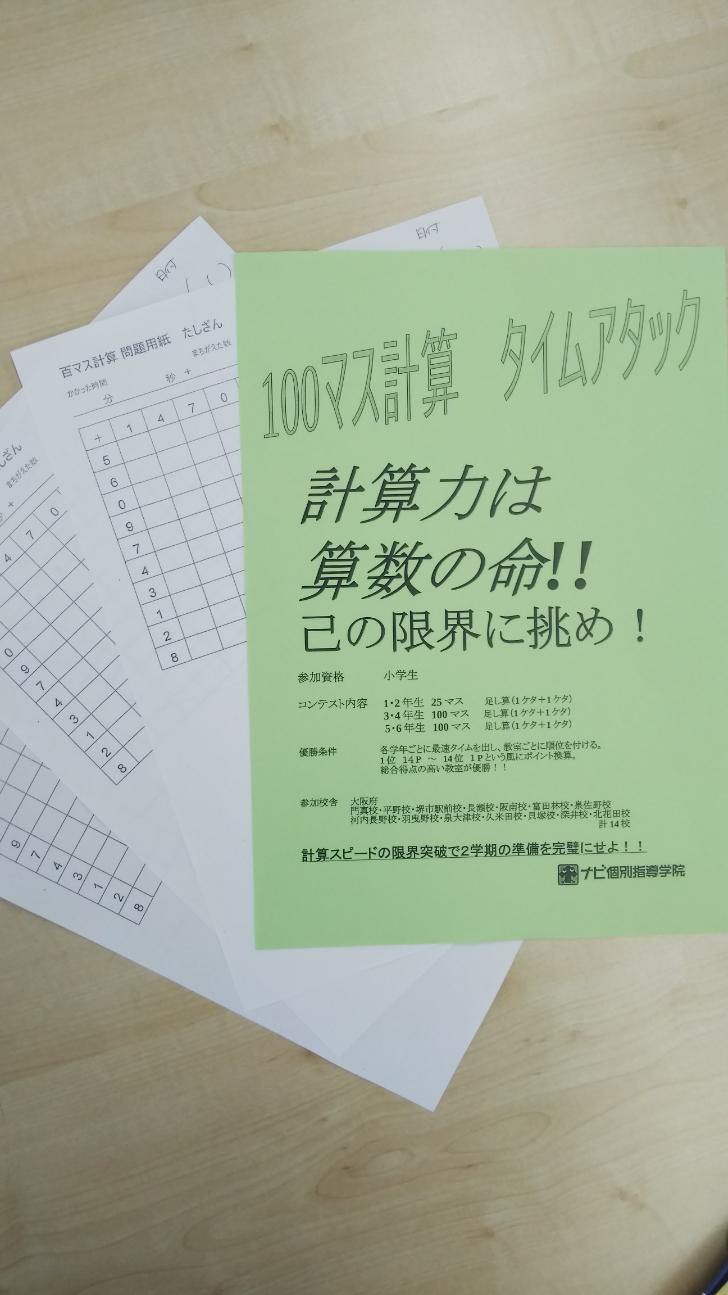 100マス計算 タイムアタック
計算力は
算数の命!!
己の限界に挑め！
参加資格 小学生
コンテスト内容 1・2年生 25マス 足し算(1ケタ+1ケタ)
3・4年生 100マス 足し算(1ケタ+1ケタ)
5・6年生 100マス 足し算(1ケタ+1ケタ)
優勝条件 各学年ごとに最速タイムを出し、教室ごとに順位を付ける。
1位 14P ～ 14位 1Pという風にポイント換算。
総合得点の高い教室が優勝！！
参加校舎 大阪府
門真校・平野校・堺市駅前校・長瀬校・阪南校・富田林校・泉佐野校
河内長野校・羽曳野校・泉大津校・久米田校・貝塚校・深井校・北花田校
計14校
計算スピードの限界突破で2学期の準備を完璧にせよ！！
ナビ個別指導学院
日付
( )
日付
百マス計算 問題用紙 たしざん
かかった時間 まちがえた数
分 秒 +
+ 1 4 7 0
5
6
0
9
7
4
3
1
2
8
ざん
まちがえた数
+
4 7 0
0
9
7
4
3
1
2
8
9
7
4
3
1
2
8